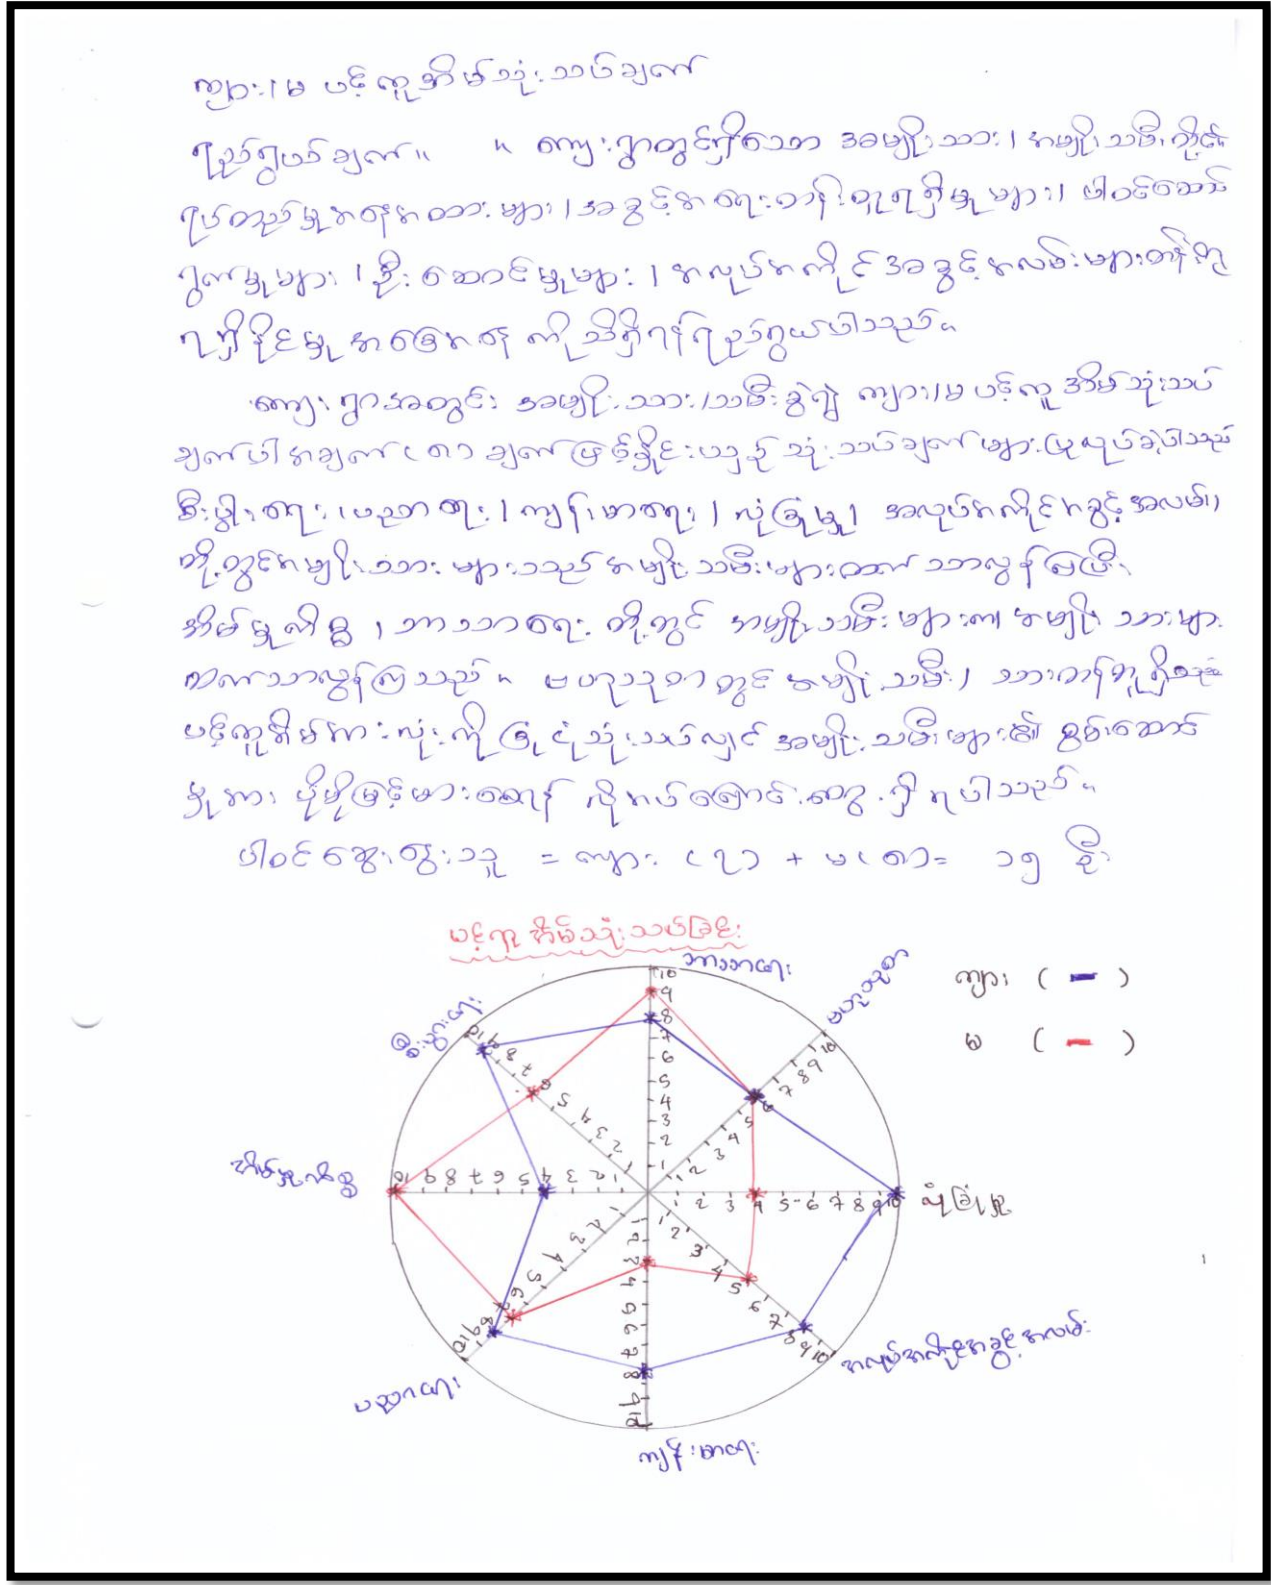 ကျား၊မ ပင့်ကူအိမ်သုံးသပ်ချက်
ရည်ရွယ်ချက်။ ။ ကျေးရွာတွင်ရှိသော အမျိုးသား၊ အမျိုးသမီးတို့၏
ရပ်တည်မှုအနေအထားများ၊ အခွင့်အရေးတန်းတူရရှိမှုများ၊ ပါဝင်ဆောင်
ရွက်မှုများ၊ ဦးဆောင်မှုများ၊ အလုပ်အကိုင်အခွင့်အလမ်းများတန်းတူ
ရရှိနိုင်မှု အခြေအနေ ကိုသိရှိရန်ရည်ရွယ်ပါသည်။
ကျေးရွာအတွင်း အမျိုးသား၊သမီးခွဲ၍ ကျား၊မ ပင့်ကူအိမ်သုံးသပ်
ချက်ပါအချက် (၈) ချက်ဖြင့်နှိုင်းယှဉ်သုံးသပ်ချက်များပြုလုပ်ခဲ့ပါသည်
စီးပွါးရေး၊ ပညာရေး၊ ကျန်းမာရေး၊ လုံခြုံမှု၊ အလုပ်အကိုင်အခွင့်အလမ်း၊
တို့တွင်အမျိုးသားများသည်အမျိုးသမီးများထက်သာလွန်ကြပြီး
အိမ်မှုကိစ္စ၊ ဘာသာရေး တို့တွင် အမျိုးသမီးများကအမျိုးသားများ
ထက်သာလွန်ကြသည်။ ဗဟုသုတတွင်အမျိုးသမီး၊ သားတန်းတူရှိသည်
ပင့်ကူအိမ်အားလုံးကိုခြုံငုံသုံးသပ်လျှင်အမျိုးသမီးများ၏ စွမ်းဆောင်
မှုအား ပိုမိုမြင့်မားစေရန် လိုအပ်ကြောင်းတွေ့ရှိရပါသည်။
ပါဝင်ဆွေးနွေးသူ = ကျား (၇) + မ (၈) = ၁၅ ဦး
ပင့်ကူအိမ်သုံးသပ်ခြင်း
ဘာသာရေး
ဗဟုသုတ
ကျား ( - )
မ ( - )
စီးပွားရေး
အိမ်မှုကိစ္စ
လုံခြုံမှု
အလုပ်အကိုင်အခွင့်အလမ်း
ပညာရေး
ကျန်းမာရေး
1 2 3 4 5 6 7 8 9 10
1 2 3 4 5 6 7 8 9 10
1 2 3 4 5 6 7 8 9 10
1 2 3 4 5 6 7 8 9 10
1 2 3 4 5 6 7 8 9 10
1 2 3 4 5 6 7 8 9 10
1 2 3 4 5 6 7 8 9 10
1 2 3 4 5 6 7 8 9 10